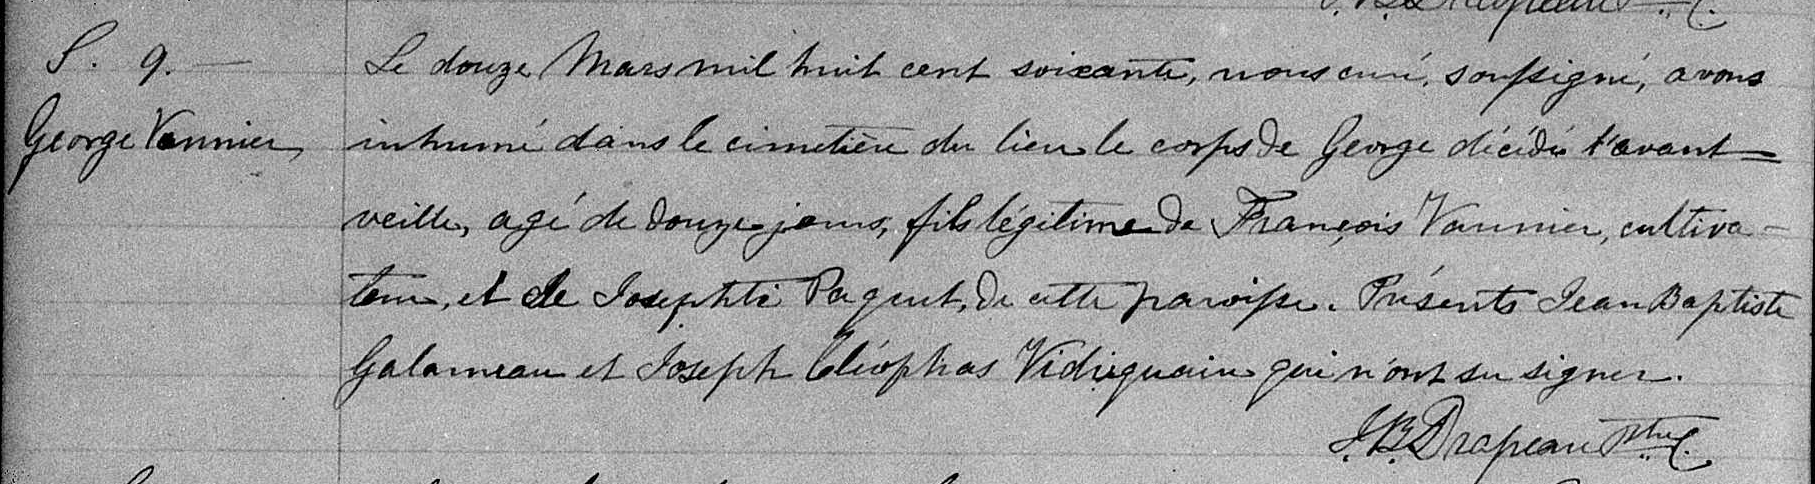 J. B. Drapeau Ptre C.
S. 9. —
George Vannier
Le douze Mars mil huit cent soixante, nous curé, soussigné, avons
inhumé dans le cimetière du lieu le corps de George décédé l'avant=
veille, agé de douze jours, fils légitime de François Vannier, cultiva-
teur, et de Josephte Paquet, de cette paroisse. Présents Jean Baptiste
Galarneau et Joseph Cléophas Vidiquain qui n'ont su signer.
J. B. Drapeau Ptre C.